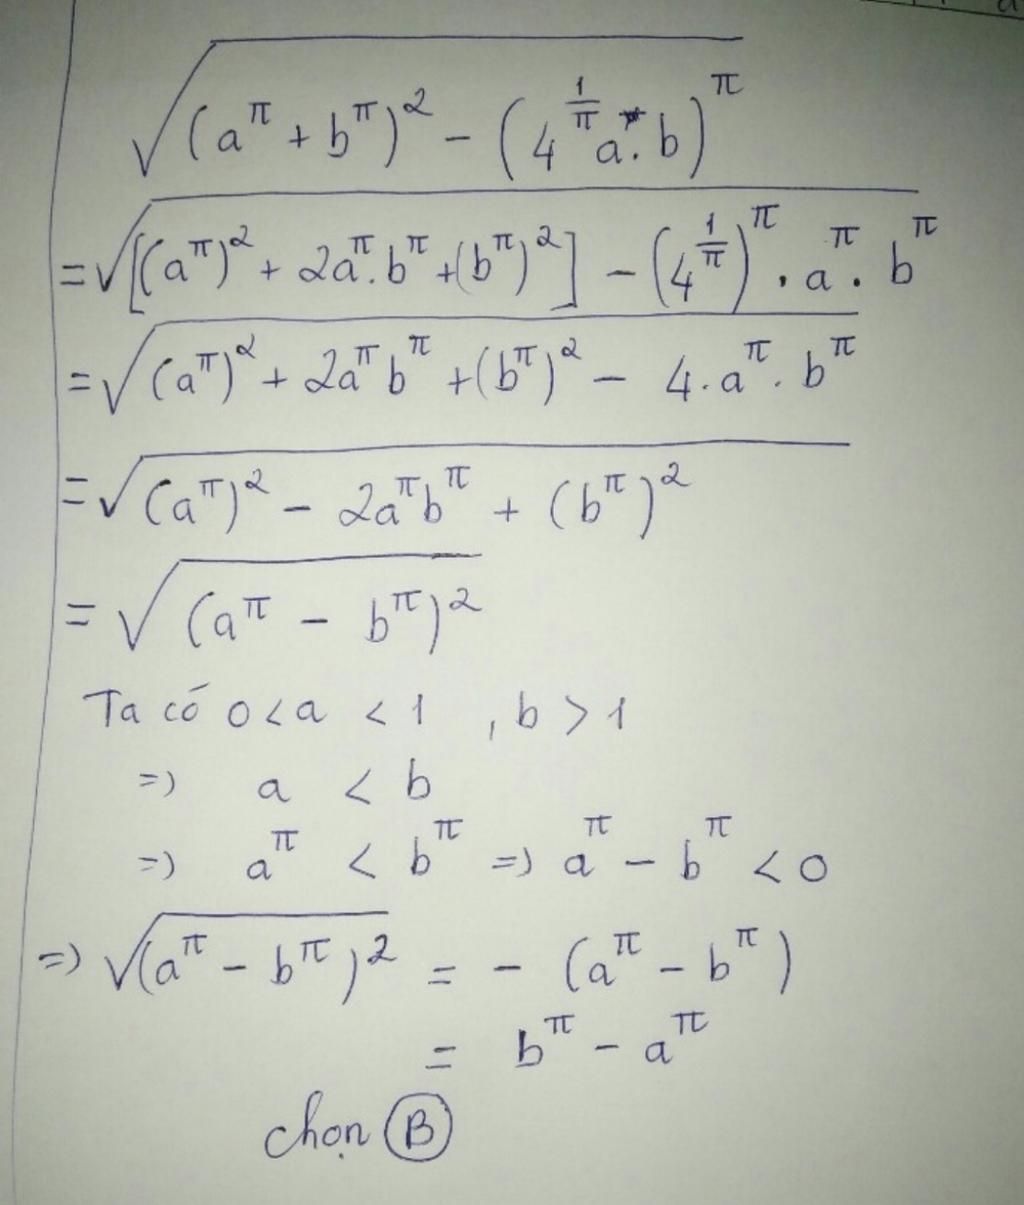 √((a^π + b^π)² - (4^(1/π) a.b)^π)
= √([(a^π)² + 2a^π.b^π + (b^π)²] - (4^(1/π))^π . a^π . b^π)
= √((a^π)² + 2a^π b^π + (b^π)² - 4.a^π.b^π)
= √((a^π)² - 2a^π b^π + (b^π)²)
= √((a^π - b^π)²)
Ta có 0 < a < 1 , b > 1
=) a < b
=) a^π < b^π =) a^π - b^π < 0
=) √((a^π - b^π)²) = - (a^π - b^π)
= b^π - a^π
chọn B